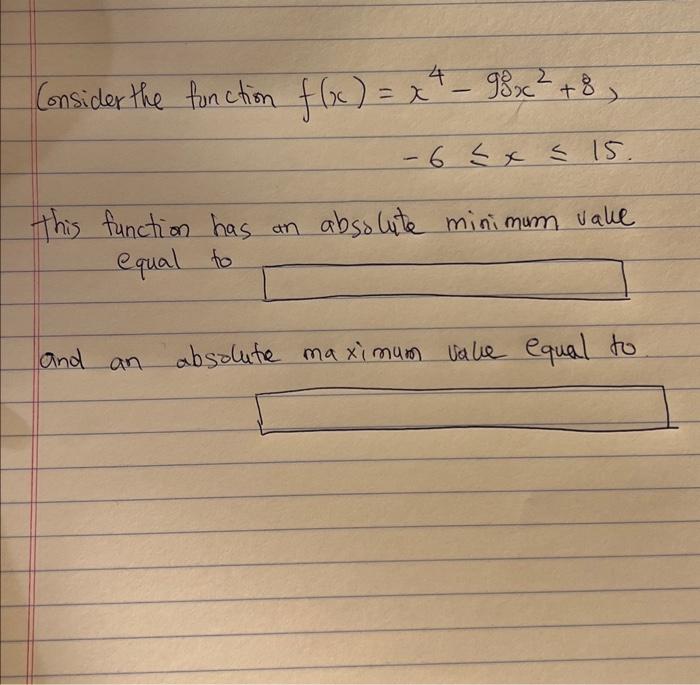 Consider the function f(x) = x⁴ - 98x² + 8,
-6 ≤ x ≤ 15.
This function has an absolute minimum value
equal to
and an absolute maximum value equal to